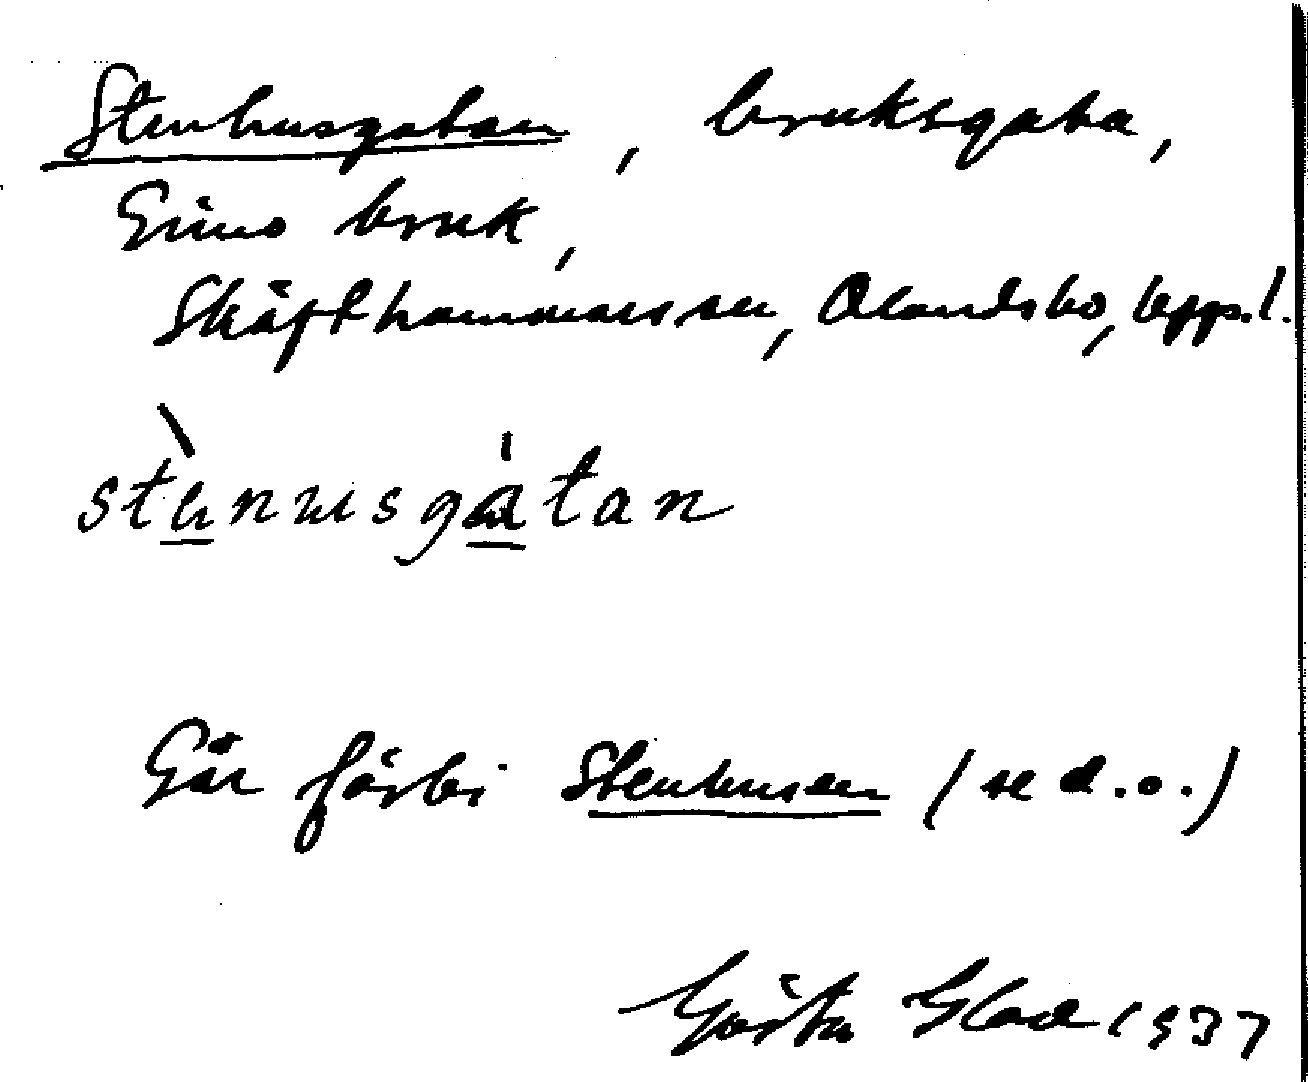 Stenhusgatan, bruksgata,
Gimo bruk,
Skäfthammars sn, Olandshd, Upps.l.
stenusgatan
Går förbi Stenhusen (se d.o.)
Gösta Glad 1937